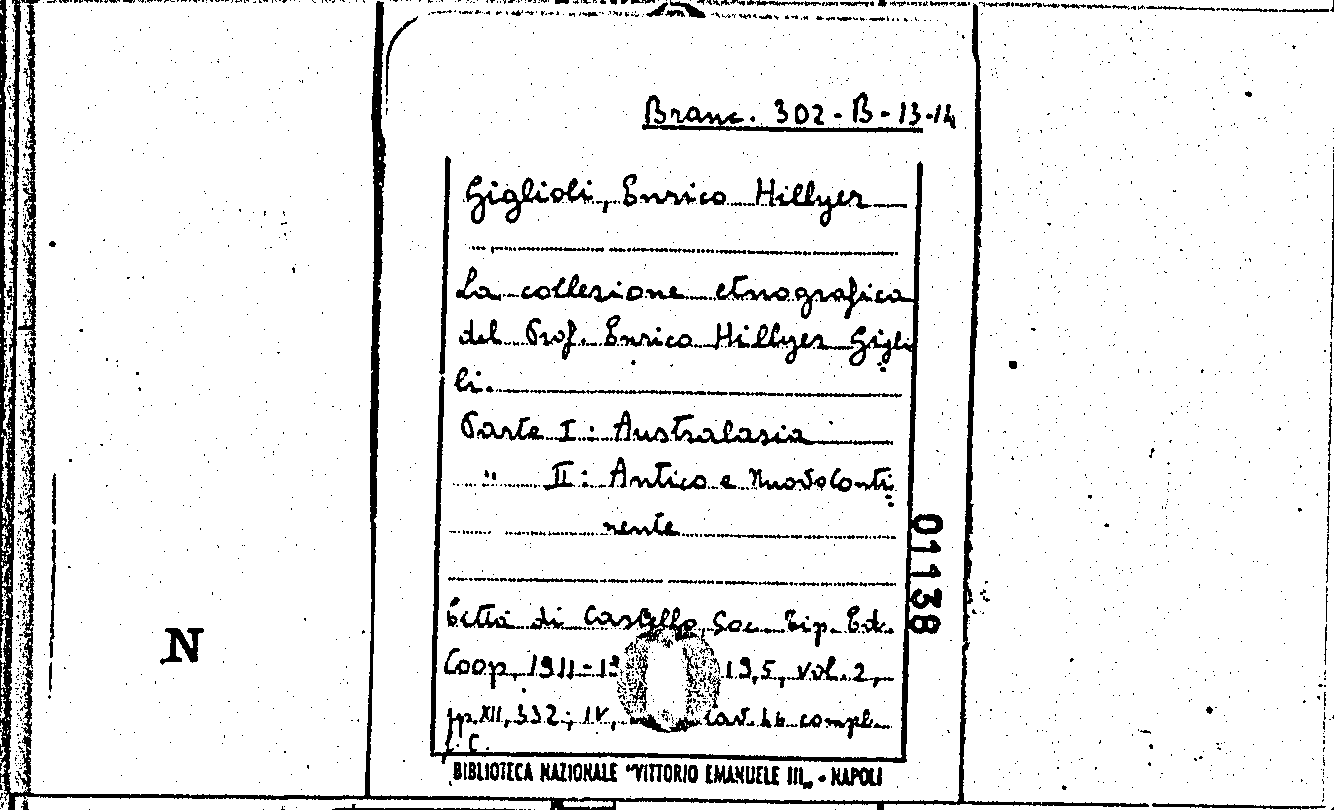 Branc. 302-B-13-14
Giglioli, Enrico Hillyer
La collezione etnografica
del Prof. Enrico Hillyer Giglio
li.
Parte I: Australasia
" II: Antico e Nuovo Conti
nente
01138
Città di Castello Soc. Tip. Ed.
N
Coop, 1911-19 19,5, vol. 2,
pp. XII, 332; IV, tav. compl.
BIBLIOTECA NAZIONALE "VITTORIO EMANUELE III„ - NAPOLI